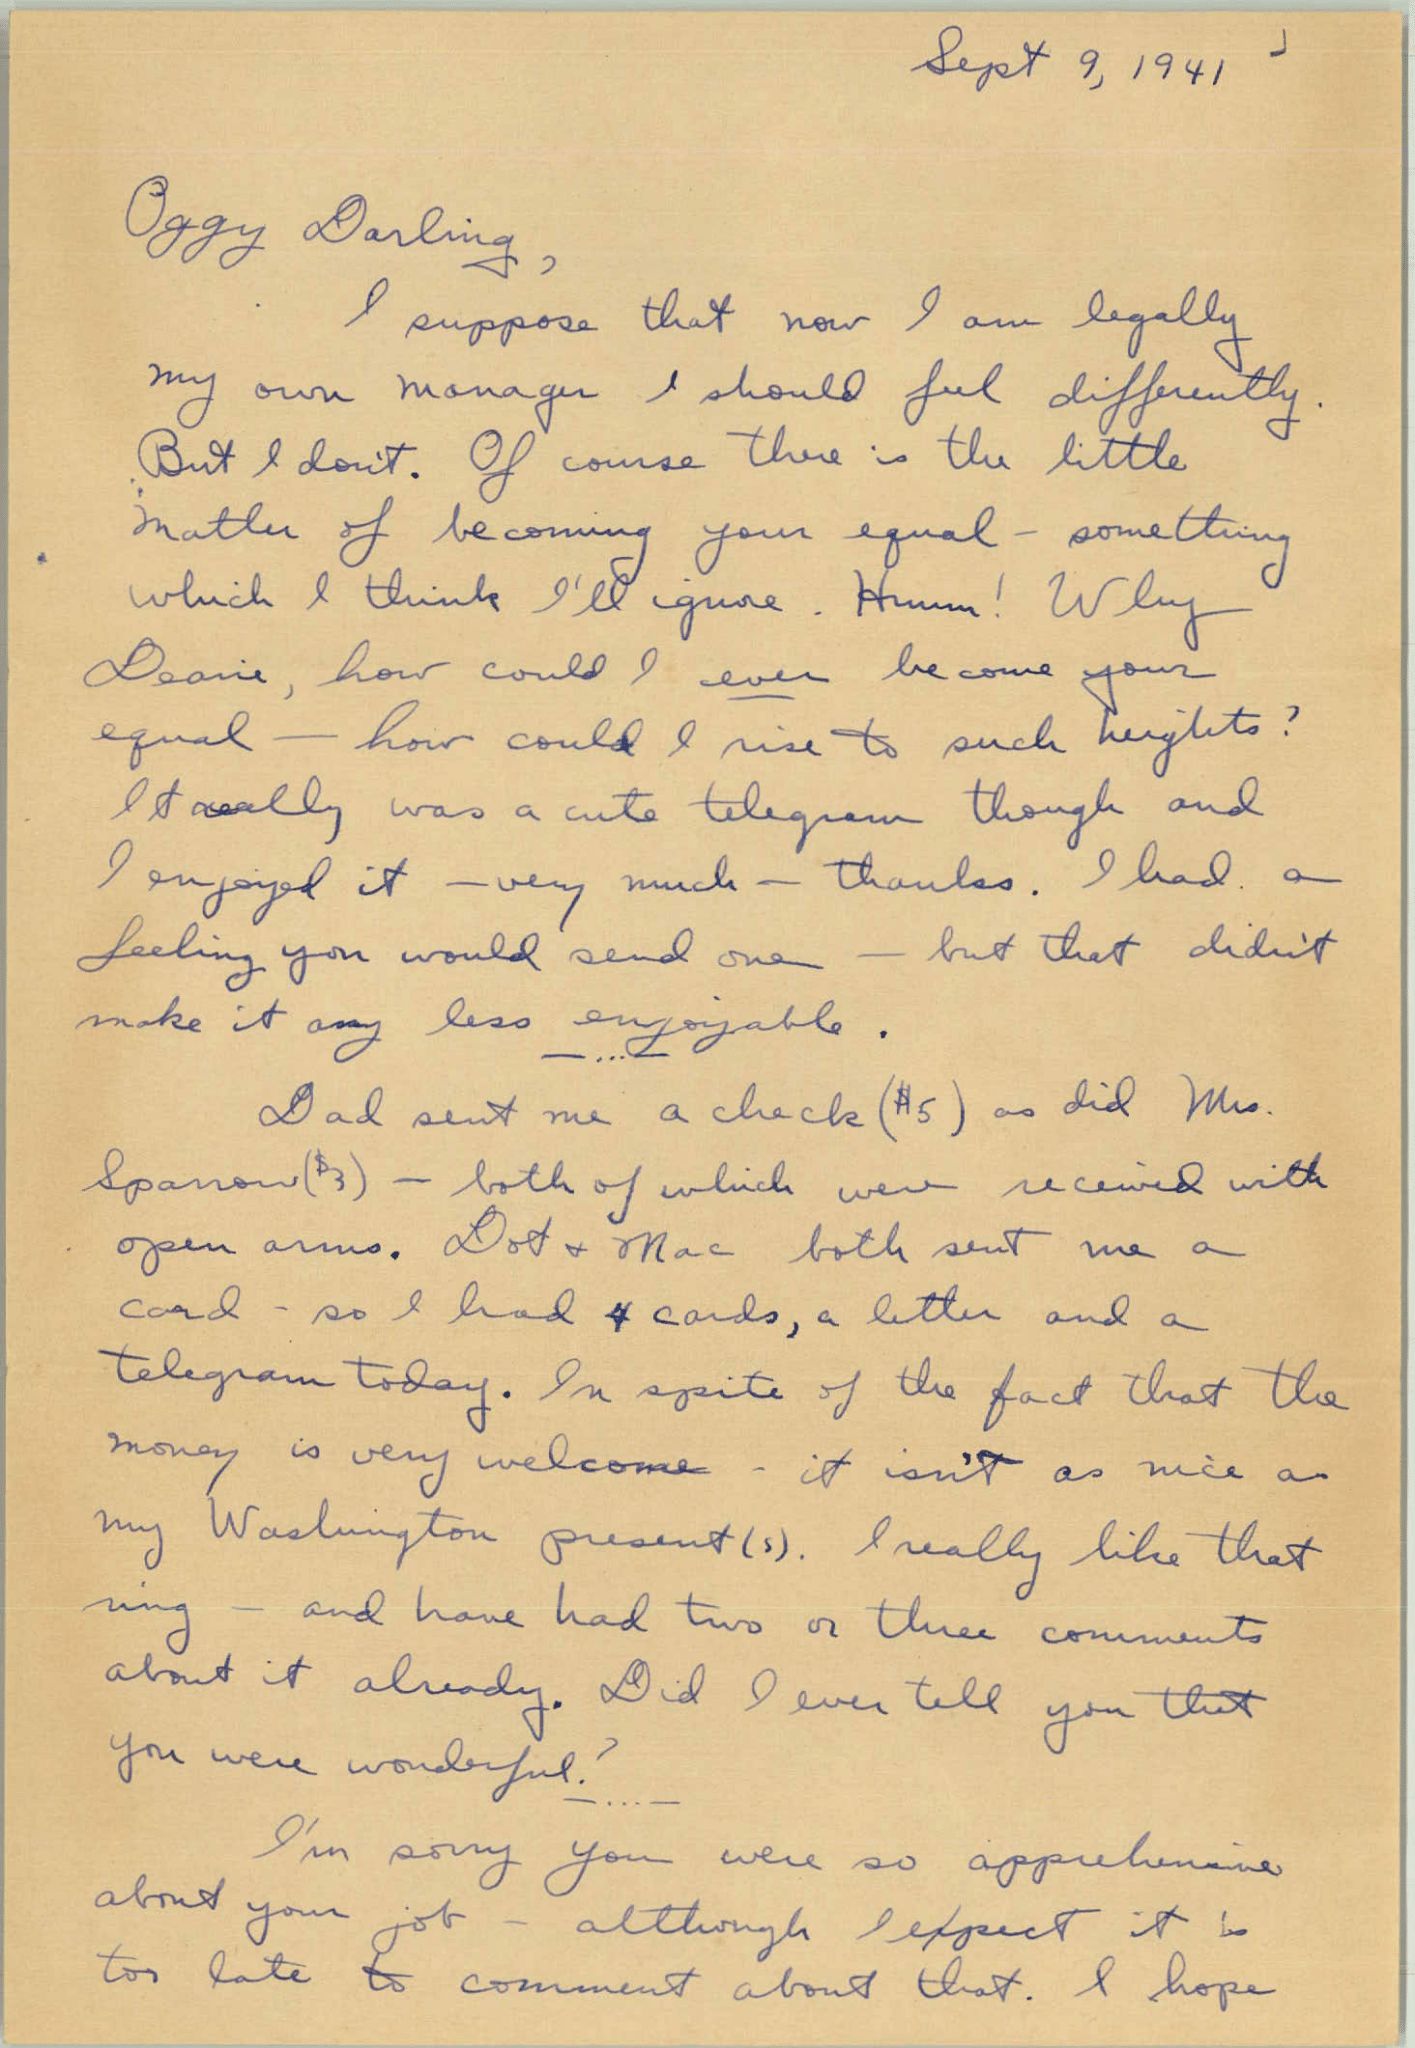 Sept 9, 1941
Oggy Darling,
I suppose that now I am legally
my own manager I should feel differently.
But I don't. Of course there is the little
matter of becoming your equal - something
which I think I'll ignore. Hmmm! Why
Dearie, how could I ever become your
equal — how could I rise to such heights?
It really was a cute telegram though and
I enjoyed it - very much - thanks. I had a
feeling you would send one - but that didn't
make it any less enjoyable.
—...—
Dad sent me a check ($5) as did Mrs.
Sparrow ($3) - both of which were received with
open arms. Dot & Mac both sent me a
card - so I had 4 cards, a letter and a
telegram today. In spite of the fact that the
money is very welcome - it isn't as nice as
my Washington present(s). I really like that
ring - and have had two or three comments
about it already. Did I ever tell you that
you were wonderful?
—...—
I'm sorry you were so apprehensive
about your job - although I expect it is
too late to comment about that. I hope